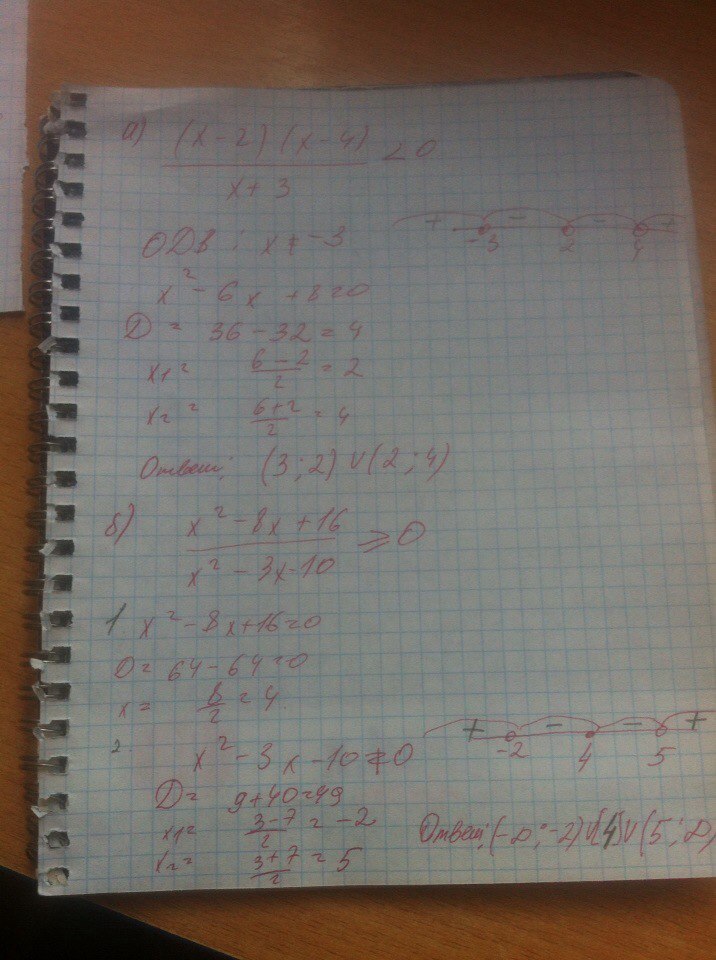 а) (x-2)(x-4) / x+3 < 0
+ - - +
-3 2 4
ОДЗ: x ≠ -3
x² - 6x + 8 = 0
D = 36 - 32 = 4
x₁ = 6-2 / 2 = 2
x₂ = 6+2 / 2 = 4
Ответ: (3; 2) ∪ (2; 4)
б) x² - 8x + 16 / x² - 3x - 10 ⩾ 0
1 x² - 8x + 16 = 0
D = 64 - 64 = 0
x = 8/2 = 4
+ - - +
-2 4 5
2 x² - 3x - 10 ≠ 0
D = 9 + 40 = 49
x₁ = 3-7 / 2 = -2
x₂ = 3+7 / 2 = 5
Ответ: (-∞; -2) ∪ {4} ∪ (5; ∞)